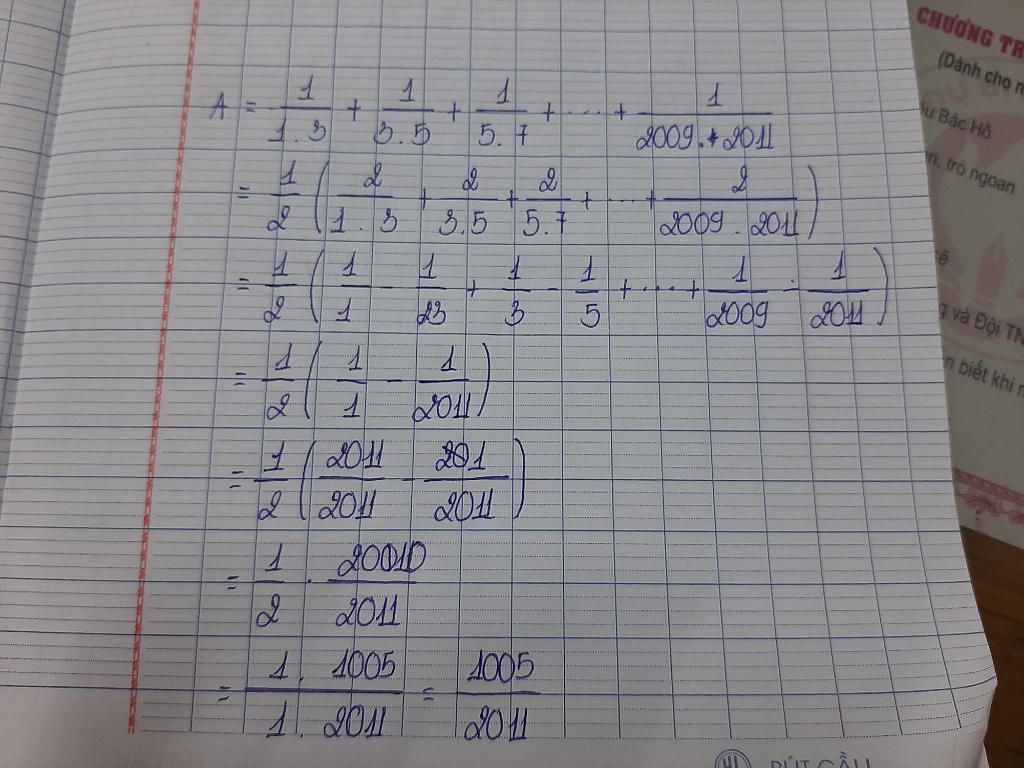 A = 1/1.3 + 1/3.5 + 1/5.7 + ... + 1/2009.2011
= 1/2 ( 2/1.3 + 2/3.5 + 2/5.7 + ... + 2/2009.2011 )
= 1/2 ( 1/1 - 1/3 + 1/3 - 1/5 + ... + 1/2009 - 1/2011 )
= 1/2 ( 1/1 - 1/2011 )
= 1/2 ( 2011/2011 - 1/2011 )
= 1/2 . 2010/2011
= 1.1005/1.2011 = 1005/2011
CHƯƠNG TR
(Dành cho
Bác Hồ
trò ngoan
và Đội TN
biết khi
BÚT CẦU